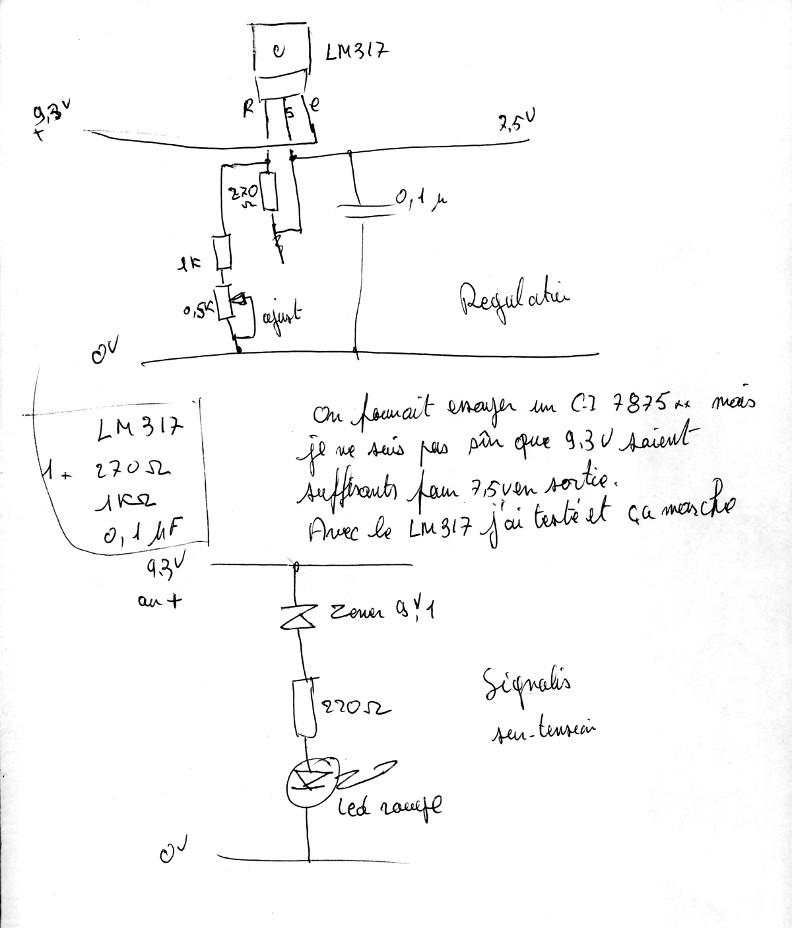 LM317
R S e
9,3V
+
7,5V
270
Ω
0,1 µ
1K
0,5K
ajust
Regulation
0V
LM317
270Ω
1KΩ
0,1 µF
On pourrait essayer un C.I 7875 xx mais
je ne suis pas sûr que 9.3V soient
suffisants pour 7,5V en sortie.
Avec le LM317 j'ai testé et ça marche
9.3V
au +
Zener 9V1
220Ω
Signalis
sur-tension
Led rouge
0V